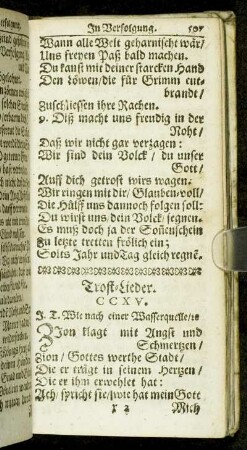 In Verfolgung. 507
Wann alle Welt geharnischt wär/
Uns freyen Paß bald machen.
Du kanst mit deiner starcken Hand
Den Löwen/die für Grimm ent-
brandt/
Zuschliessen ihre Rachen.
9. Diß macht uns freudig in der
Noht/
Daß wir nicht gar verzagen:
Wir sind dein Volck/ du unser
Gott/
Auff dich getrost wirs wagen.
Wir ringen mit dir/ Glauben-voll/
Die Hülff uns dannoch folgen soll:
Du wirst uns dein Volck/ segnen.
Es muß doch ja der Sonenschein
Zu letzte tretten frölich ein;
Solts Jahr und Tag gleich regnē.
Trost-Lieder.
CCXV.
J. T. Wie nach einer Wasserquelle/ꝛc
ZJon klagt mit Angst und
Schmertzen/
Zion/ Gottes werthe Stadt/
Die er trägt in seinem Hertzen/
Die er ihm erwehlet hat:
Ach/ spricht sie/ wie hat mein Gott
X 2 Mich